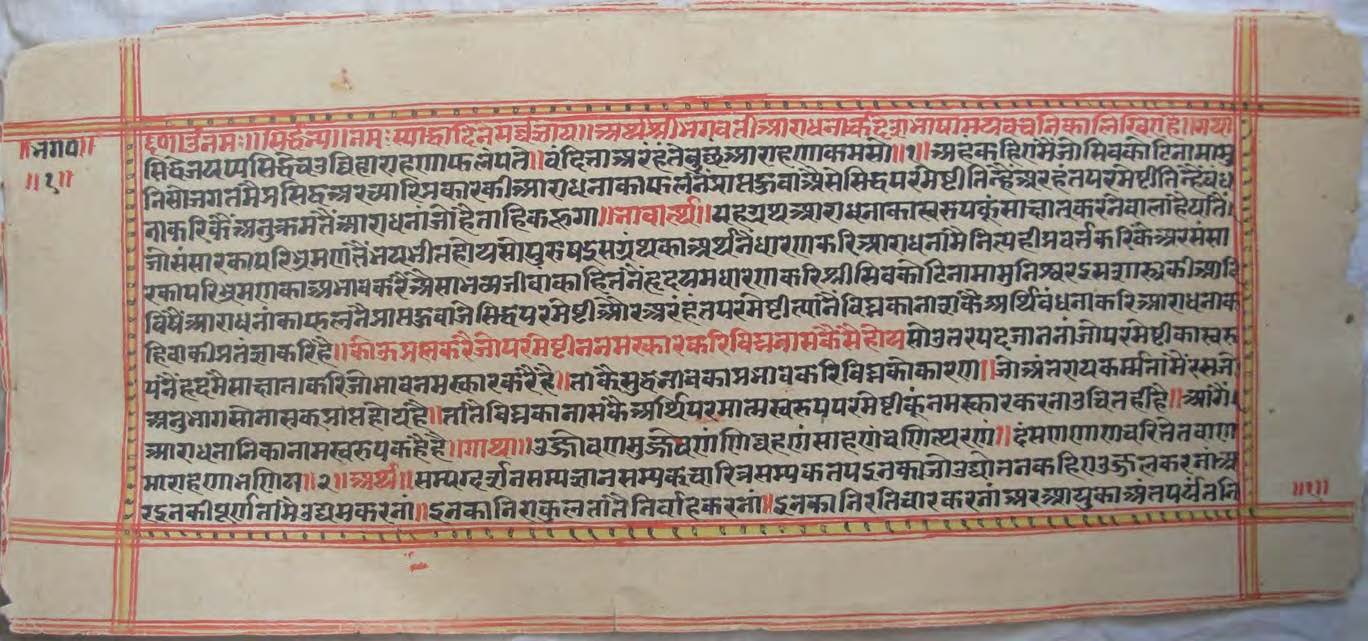 ॥भग०॥
॥१॥
॥ॐनमः॥सिद्धेभ्यः॥नमः स्याद्वादिने सर्वज्ञाय॥अथ श्री भगवती आराधना की देशभाषामय वचनिका लिखिए है॥गाथा
सिद्धेजयप्पसिद्धेचउव्विहाराहणाफलंपत्ते॥वंदित्ताअरहंतेवुच्छंआराहणाकमसो॥१॥अहकहिएमैजोसिवकोटिनामामु
निसोजगतमैप्रसिद्धअरच्यारिप्रकारकीआराधनाकाफलनैप्राप्तहुवाऐसेसिद्धपरमेष्टीतिन्हैअरहंतपरमेष्टीतिन्हैवंध
नाकरिकैअनुक्रमतैआराधनाजोहैताहिकहूगा॥भावार्त्थ॥यहग्रंथआराधनाकास्वरूपकूंसाक्षातकरनेवालाहैयातै।
जोसंसारकापरिभ्रमणतैभयभीतहोयसोपुरुषइसग्रंथकाअर्थनैधारणकरिआराधनामैनित्यहीप्रवर्त्तकरिकैअरसंसा
रकापरिभ्रमणकाअभावकरैऐसाभव्यजीवांकाहितनैहृदयमधारणकरिश्रीसिवकोटिनामामुनिश्वरइसशास्त्रकीआदि
विषैआराधनाकाफलनैप्राप्तहुवाजेसिद्धपरमेष्टीऔरअरहंतपरमेष्टीत्यांनैविघ्नकानाशकैअर्थिवंधनाकरिआराधनाक
हिवाकीप्रतज्ञाकरिहै॥कोऊप्रस्नकरैजोपरमेष्टीननमस्कारकरिविघ्ननासकैसैहोयसोउतरपदजाननांजोपरमेष्टीकास्वरू
पनैहृदमैसाक्षाताकरिजोभावनमस्कारकरैहै॥ताकैसुद्धभावकाप्रभावकरिविघ्नकोकारण॥जोअंतरायकर्म्मतामैरसजो
अनुभागसोनासकूप्राप्तहोयहै॥तातैविघ्नकानासकैअर्थिपरमात्मस्वरूपपरमेष्टीकूंनमस्कारकरनाउचितहीहै॥आगैं।
आराधनानिकानामस्वरूपकहैहै॥गाथा॥उज्जोवणमुज्जवणंणिव्वहणंसाहणंचणित्थरणं॥दंसणणाणचरित्तंतवाण
माराहणाभणिदा॥२॥अर्थ॥सम्यग्दर्शनसम्यग्ज्ञानसम्यकचारित्रसम्यकतपइनकाजोउद्योतनकहिएउज्जलकरनांअ
रइनकीपूर्णतामैउद्यमकरनां॥इनकानिराकुलतातैनिर्वाहकरनां॥इनकानिरतिचारकरनांअरआयुकाअंतपर्यंतनि
॥१॥